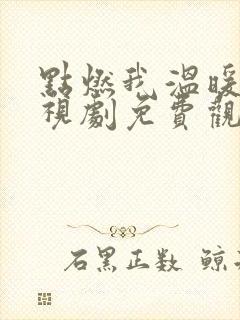 點燃我 溫暖
視劇免費觀
石黑正数 鲸